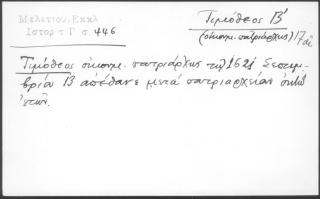 Μελετίου, Εκκλ
Ιστορ τ Γ σ. 446
Τιμόθεος Β'
(οἰκουμ. πατριάρχης) 17 αἰ
Τιμόθεος οἰκουμ. πατριάρχης τῷ 1621 Σεπτεμ-
βρίου Β ἀπέθανε μετὰ πατριαρχείαν ὀκτὼ
ἐτῶν.